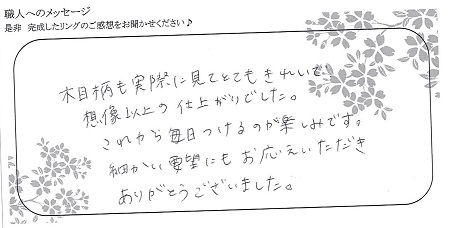 職人へのメッセージ
是非 完成したリングのご感想をお聞かせください♪
木目柄も実際に見てとてもきれいで
想像以上の仕上がりでした。
これから毎日つけるのが楽しみです。
細かい要望にもお応えいただき
ありがとうございました。